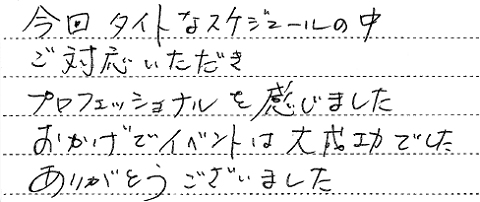 今回タイトなスケジュールの中
ご対応いただき
プロフェッショナルを感じました
おかげでイベントは大成功でした
ありがとうございました